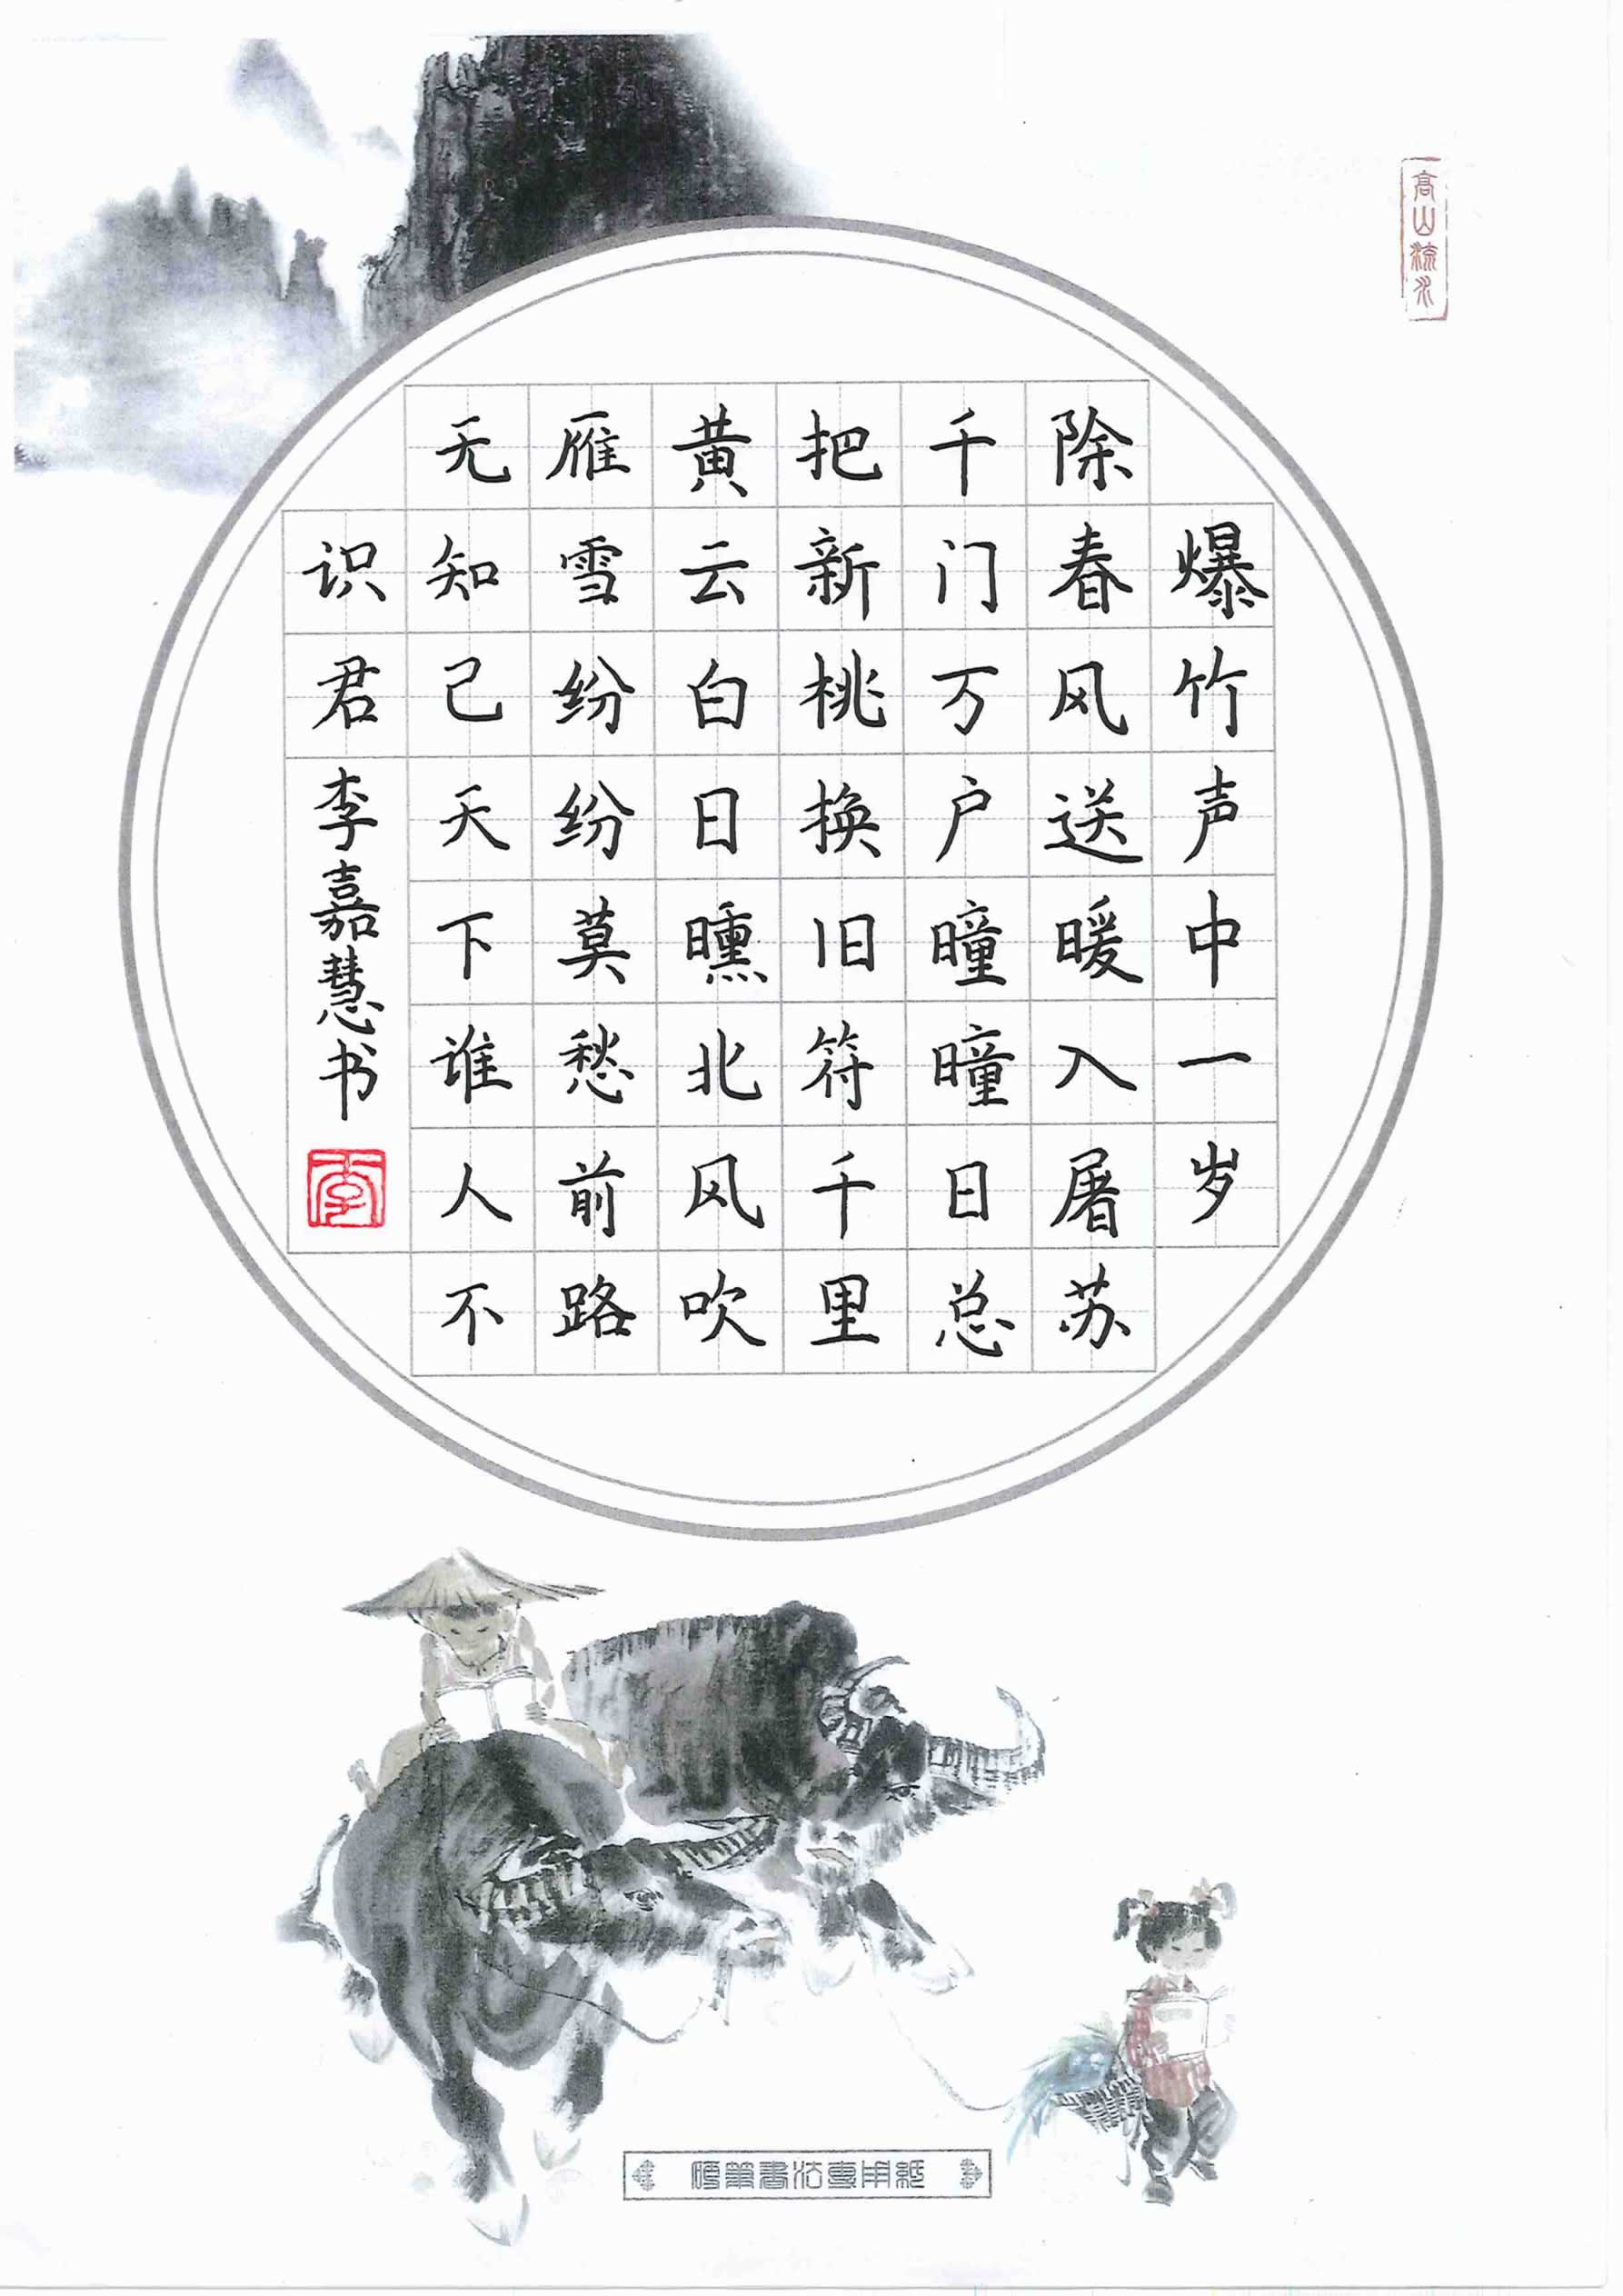 高山流水
爆竹声中一岁
除春风送暖入屠苏
千门万户曈曈日总
把新桃换旧符千里
黄云白日曛北风吹
雁雪纷纷莫愁前路
无知己天下谁人不
识君
李嘉慧书
李
硬筆書法專用紙